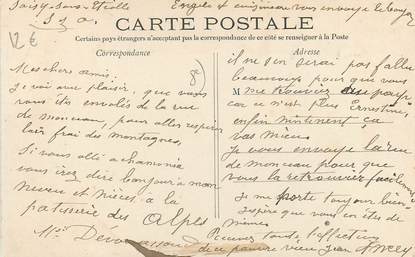 Soisy-sous-Etiolle
S. & O.
12 €
CARTE POSTALE
Certains pays étrangers n'acceptant pas la correspondance de ce côté se renseigner à la Poste
Correspondance
Adresse
Mes chers amis
Je vois avec plaisir, que vous
vous êtes envolés de la rue
de monceau, pour aller respirer
lair frai des montagnes,
Si vous allé a chamonix
vous irez dire bonjour à mon
neveu et nièces, à la
patisserie des Alpes
Mr Devouassoud
il ne m'en serai pas fallu
beaucoup pour que vous
M me trouviez au pays
car ce n'est plus Ernestine,
enfin mintenent ça
vas mieux
Je vous envoye la rue
de monceau pour que
vous la retrouviez facilement
Je me porte toujour bien
J'espère que vous en êtes de
mêmes
Recevez toute l'affection
de ce pauvre vieux Jean